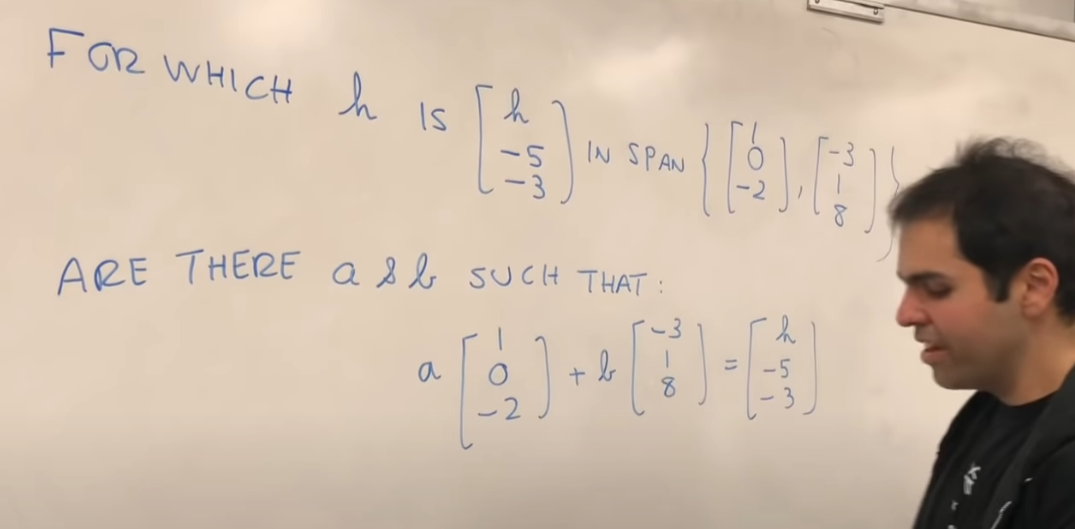 FOR WHICH h IS [h -5 -3] IN SPAN {[1 0 -2], [-3 1 8]}
ARE THERE a & b SUCH THAT:
a [1 0 -2] + b [-3 1 8] = [h -5 -3]